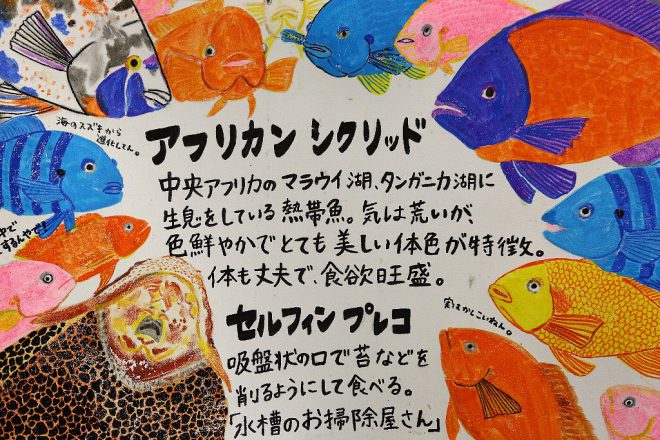 海のスズキから
進化してん。
アフリカン シクリッド
中央アフリカの マラウイ湖、タンガニカ湖に
生息をしている熱帯魚。気は荒いが、
色鮮やかでとても美しい体色が特徴。
体も丈夫で、食欲旺盛。
実はかしこいねん。
セルフィン プレコ
吸盤状の口で苔などを
削るようにして食べる。
「水槽のお掃除屋さん」